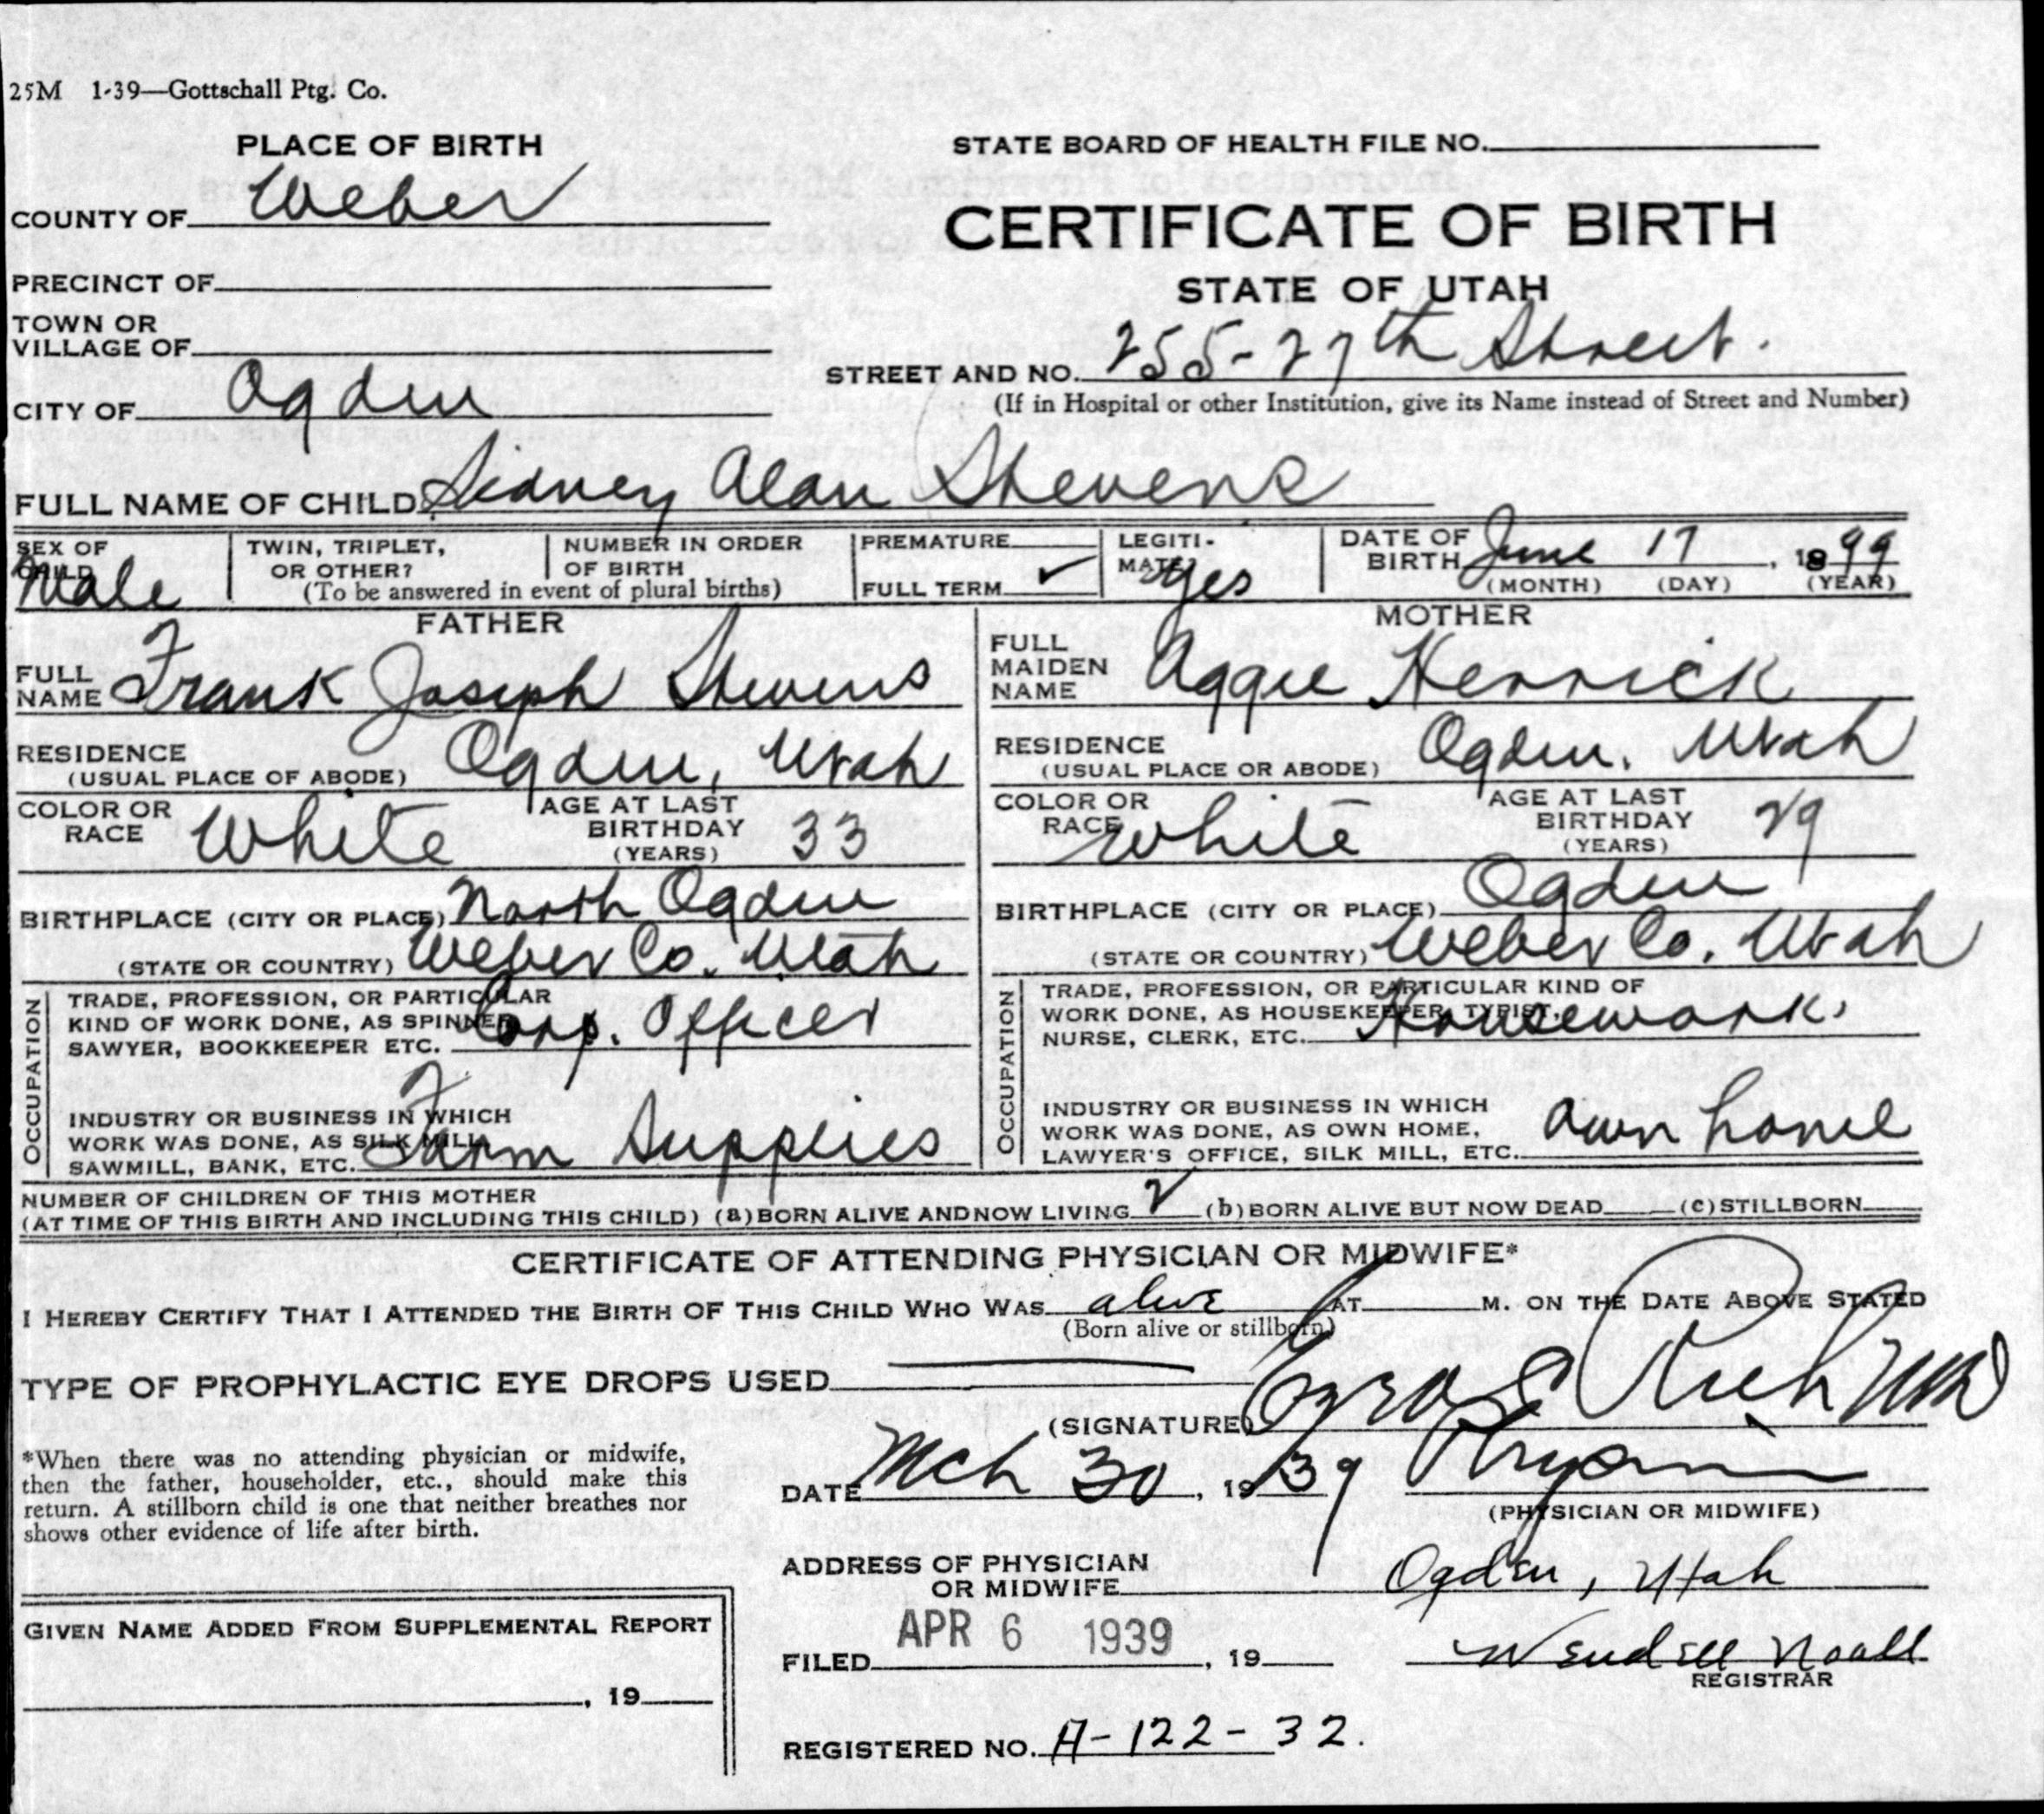 25M 1-39—Gottschall Ptg. Co.
PLACE OF BIRTH
STATE BOARD OF HEALTH FILE NO.
COUNTY OF Weber
CERTIFICATE OF BIRTH
PRECINCT OF
STATE OF UTAH
TOWN OR
VILLAGE OF
STREET AND NO. 255-27th Street.
CITY OF Ogden
(If in Hospital or other Institution, give its Name instead of Street and Number)
FULL NAME OF CHILD Sidney Alan Stevens
SEX OF CHILD Male
TWIN, TRIPLET, OR OTHER?
NUMBER IN ORDER OF BIRTH
(To be answered in event of plural births)
PREMATURE
FULL TERM ✓
LEGITI-MATE? Yes
DATE OF BIRTH June 17, 1899
(MONTH) (DAY) (YEAR)
FATHER
FULL NAME Frank Joseph Stevens
RESIDENCE
(USUAL PLACE OF ABODE) Ogden, Utah
COLOR OR RACE White
AGE AT LAST BIRTHDAY (YEARS) 33
BIRTHPLACE (CITY OR PLACE) North Ogden
(STATE OR COUNTRY) Weber Co. Utah
OCCUPATION
TRADE, PROFESSION, OR PARTICULAR
KIND OF WORK DONE, AS SPINNER
SAWYER, BOOKKEEPER ETC. Corp. Officer
INDUSTRY OR BUSINESS IN WHICH
WORK WAS DONE, AS SILK MILL
SAWMILL, BANK, ETC. Farm Supplies
MOTHER
FULL MAIDEN NAME Aggie Herrick
RESIDENCE
(USUAL PLACE OR ABODE) Ogden, Utah
COLOR OR RACE White
AGE AT LAST BIRTHDAY (YEARS) 29
BIRTHPLACE (CITY OR PLACE) Ogden
(STATE OR COUNTRY) Weber Co. Utah
OCCUPATION
TRADE, PROFESSION, OR PARTICULAR KIND OF
WORK DONE, AS HOUSEKEEPER, TYPIST,
NURSE, CLERK, ETC. Housework.
INDUSTRY OR BUSINESS IN WHICH
WORK WAS DONE, AS OWN HOME,
LAWYER'S OFFICE, SILK MILL, ETC. Own home
NUMBER OF CHILDREN OF THIS MOTHER
(AT TIME OF THIS BIRTH AND INCLUDING THIS CHILD) (a) BORN ALIVE AND NOW LIVING 2 (b) BORN ALIVE BUT NOW DEAD (c) STILLBORN
CERTIFICATE OF ATTENDING PHYSICIAN OR MIDWIFE*
I HEREBY CERTIFY THAT I ATTENDED THE BIRTH OF THIS CHILD WHO WAS alive AT M. ON THE DATE ABOVE STATED
(Born alive or stillborn)
TYPE OF PROPHYLACTIC EYE DROPS USED
(SIGNATURE) Rich MD
*When there was no attending physician or midwife,
then the father, householder, etc., should make this
return. A stillborn child is one that neither breathes nor
shows other evidence of life after birth.
DATE Mch 30, 1939
(PHYSICIAN OR MIDWIFE)
ADDRESS OF PHYSICIAN
OR MIDWIFE Ogden, Utah
GIVEN NAME ADDED FROM SUPPLEMENTAL REPORT
, 19
FILED APR 6 1939, 19
Wendell Noall
REGISTRAR
REGISTERED NO. A-122-32.